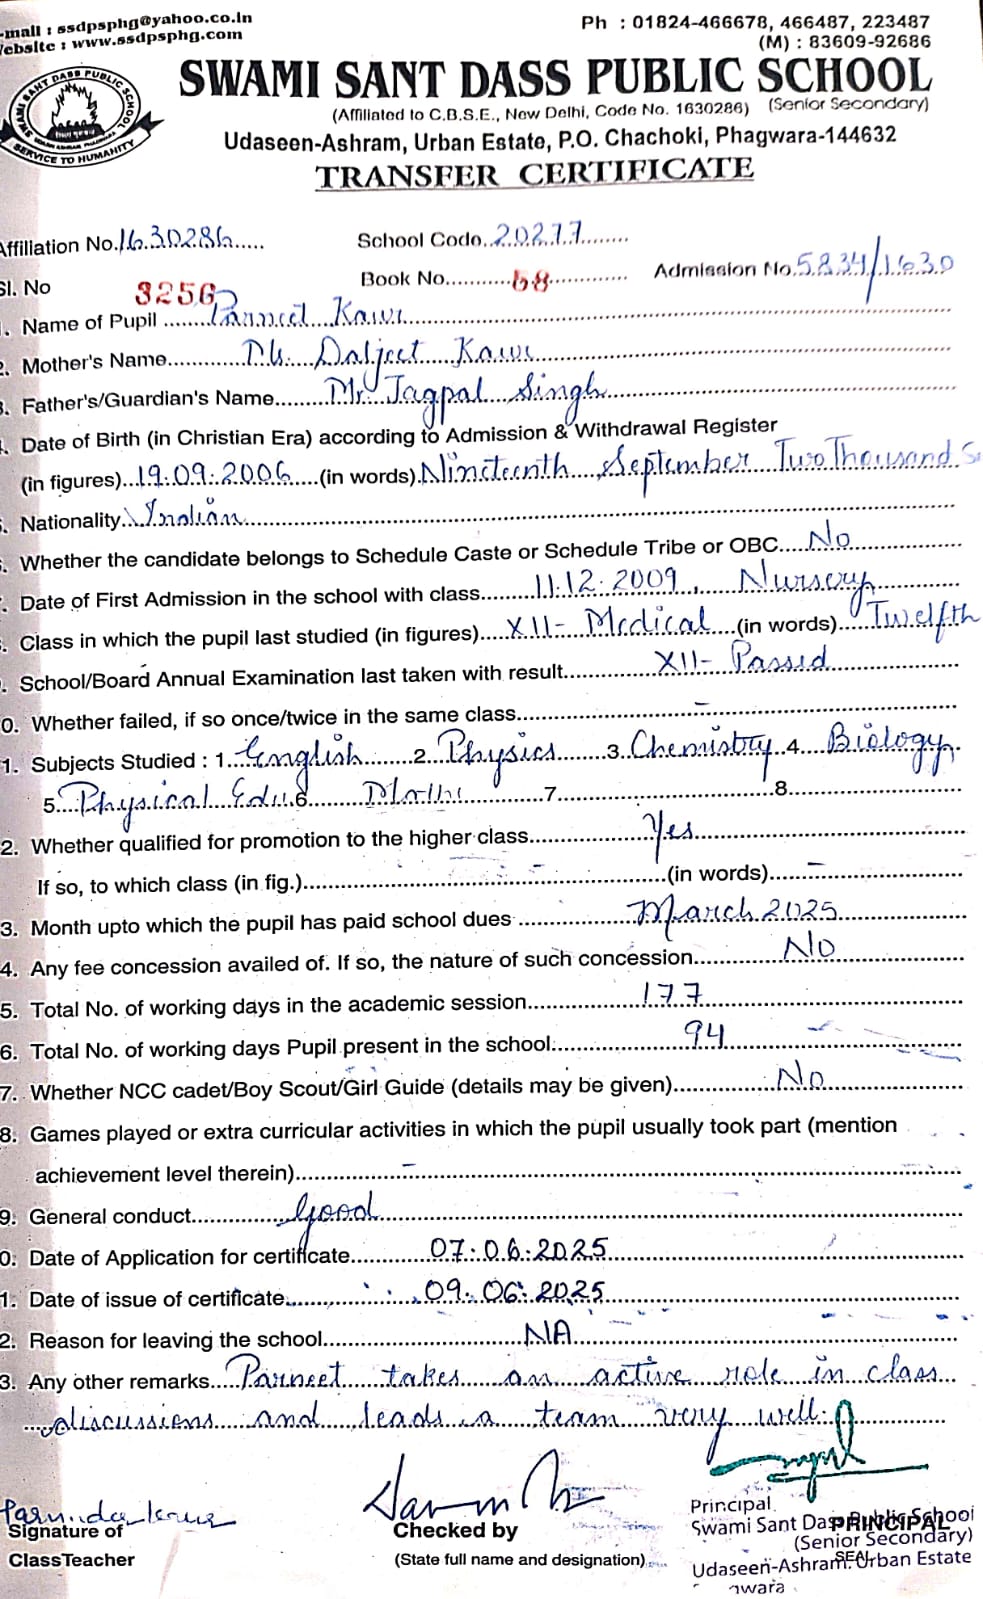 -mail : ssdpsphg@yahoo.co.in
ebsite : www.ssdpsphg.com
Ph : 01824-466678, 466487, 223487
(M) : 83609-92686
SWAMI SANT DASS PUBLIC SCHOOL
SWAMI SANT DASS PUBLIC SCHOOL
(Affiliated to C.B.S.E., New Delhi, Code No. 1630286) (Senior Secondary)
SERVICE TO HUMANITY
Udaseen-Ashram, Urban Estate, P.O. Chachoki, Phagwara-144632
TRANSFER CERTIFICATE
Affiliation No. 1630286..... School Code. 20277........
Sl. No 3256 Book No...........68............ Admission No. 5834/1630
. Name of Pupil ........Parneet Kaur
2. Mother's Name............Ms. Daljeet Kaur
3. Father's/Guardian's Name........Mr. Jagpal Singh
. Date of Birth (in Christian Era) according to Admission & Withdrawal Register
(in figures)...19.09.2006.....(in words). Nineteenth September Two Thousand S
. Nationality...Indian
. Whether the candidate belongs to Schedule Caste or Schedule Tribe or OBC.....No
. Date of First Admission in the school with class.........11.12.2009, Nursery
. Class in which the pupil last studied (in figures)....XII- Medical....(in words).....Twelfth
. School/Board Annual Examination last taken with result.............XII- Passed
0. Whether failed, if so once/twice in the same class.................... –
1. Subjects Studied : 1. English........2. Physics........3. Chemistry 4.... Biology
5....Physical Edu. 6. Maths............7............................8............
2. Whether qualified for promotion to the higher class.................Yes
If so, to which class (in fig.)............................(in words)........–
3. Month upto which the pupil has paid school dues ...............March 2025
4. Any fee concession availed of. If so, the nature of such concession.............No
5. Total No. of working days in the academic session.................177
6. Total No. of working days Pupil present in the school:...................94
7. Whether NCC cadet/Boy Scout/Girl Guide (details may be given)..............No
8. Games played or extra curricular activities in which the pupil usually took part (mention
achievement level therein)..................–
9. General conduct..............Good
0. Date of Application for certificate............07.06.2025
1. Date of issue of certificate..................09.06.2025
2. Reason for leaving the school..........................NA
3. Any other remarks....Parneet takes an active role in class
discussions and leads a team very well.
Signature of
ClassTeacher
Checked by
(State full name and designation)
Principal
Swami Sant Dass Public School
PRINCIPAL
(Senior Secondary)
SEAL
Udaseen-Ashram. Urban Estate
gwara